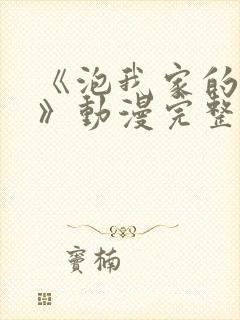 《泡我家的
》動漫完整
寶楠